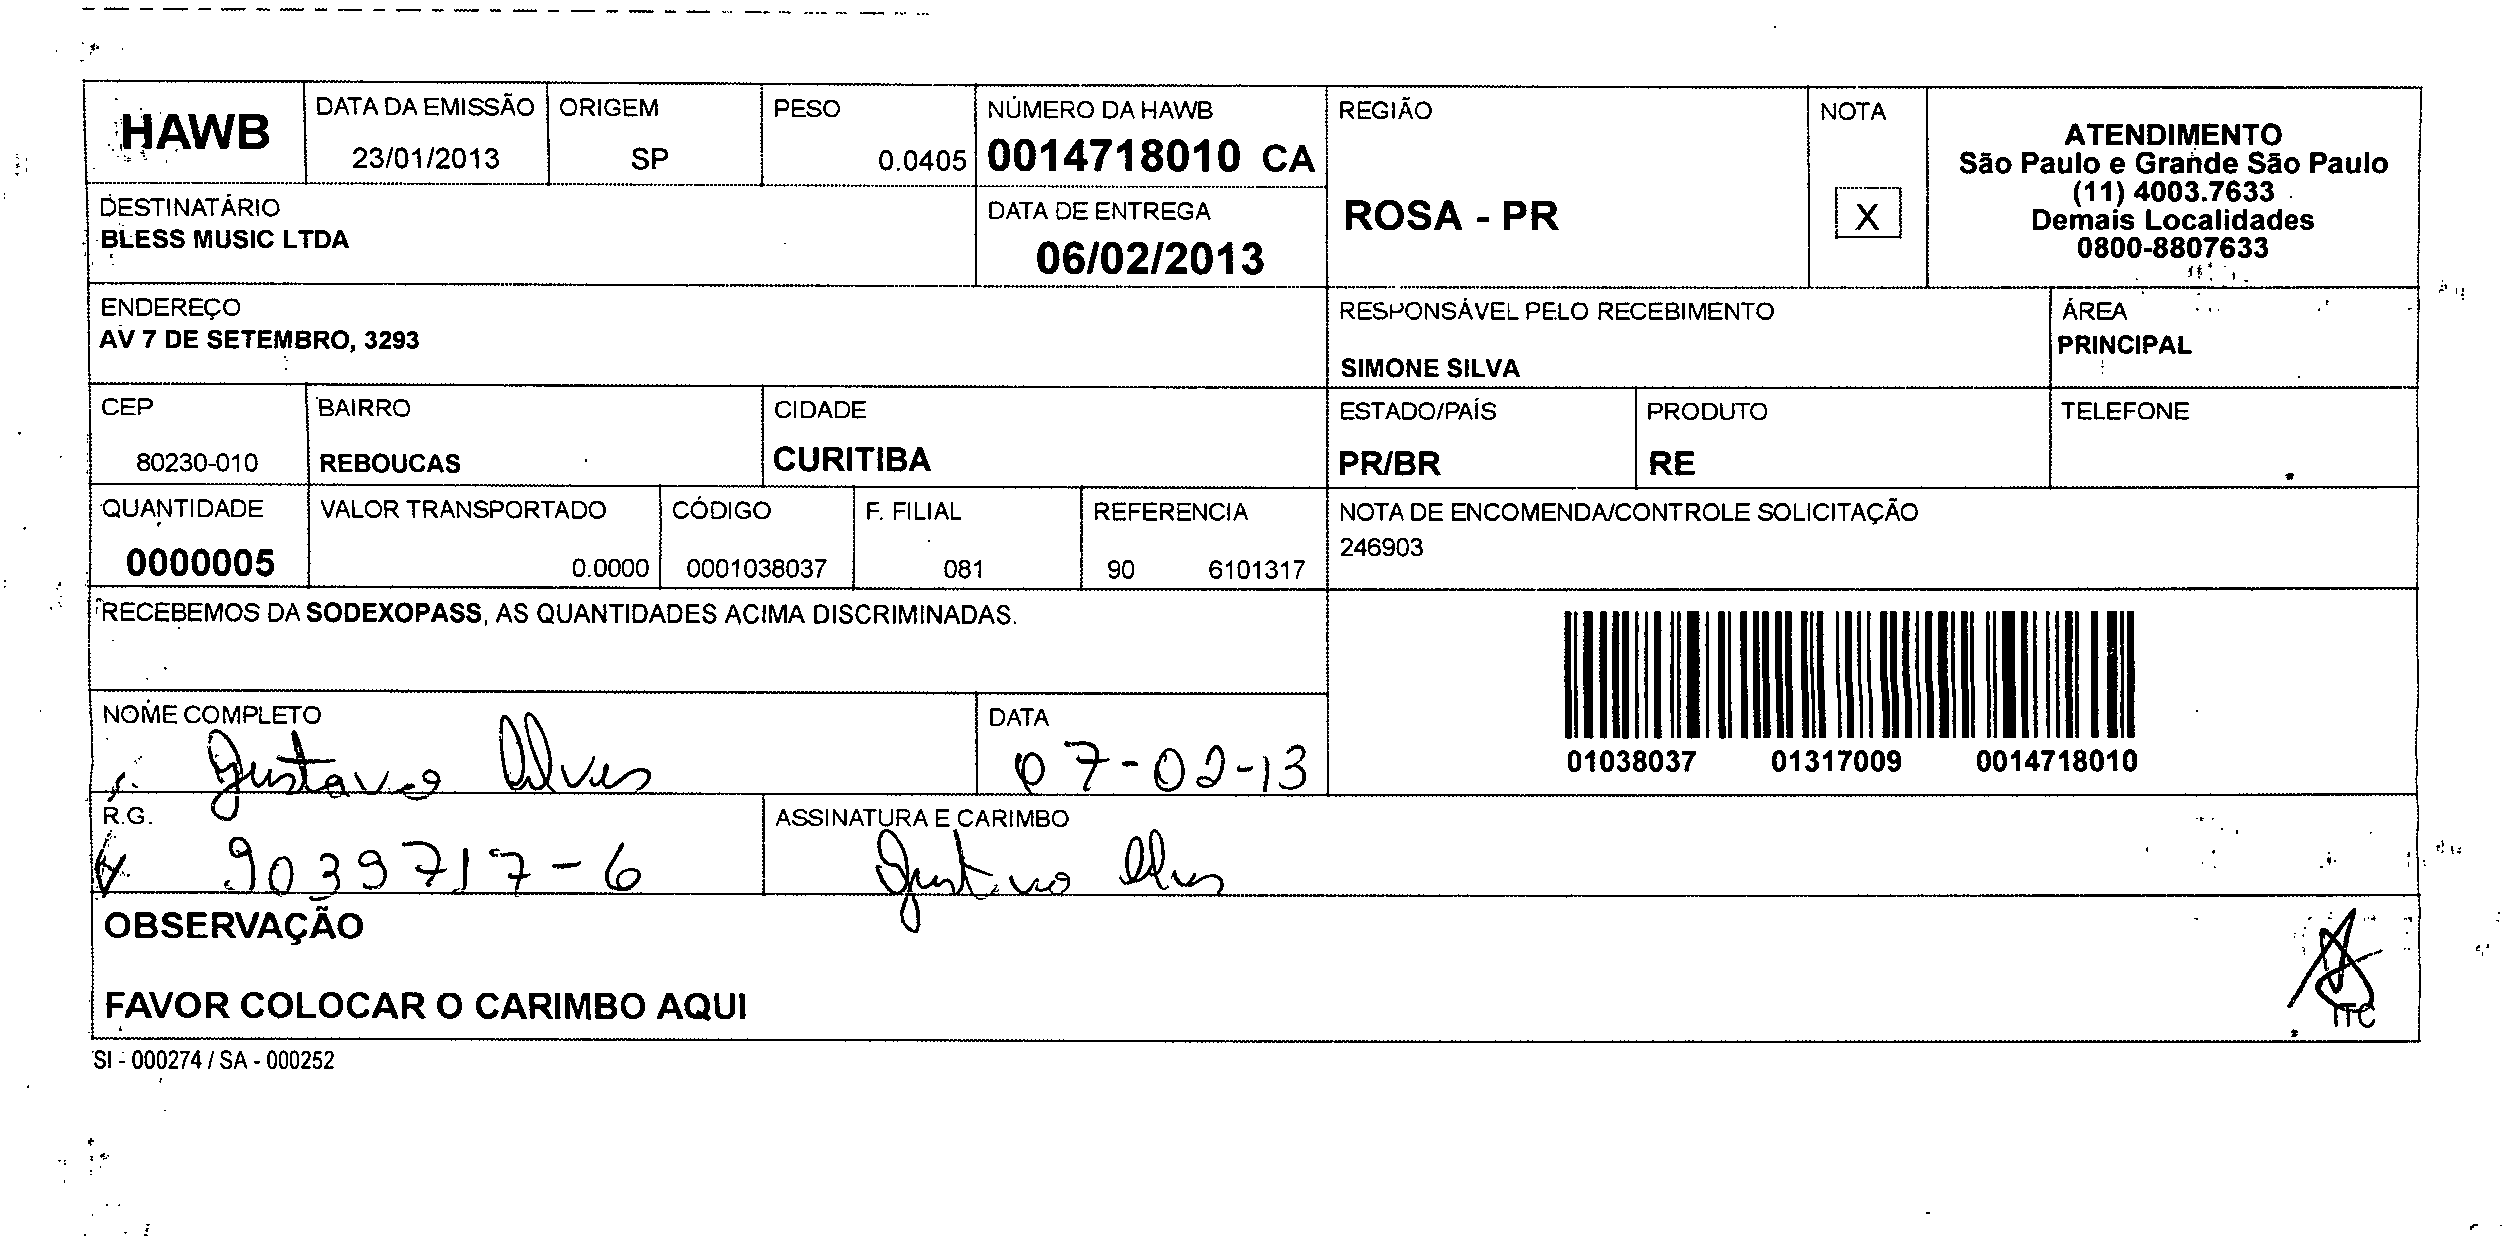 HAWB
DATA DA EMISSÃO
23/01/2013
ORIGEM
SP
PESO
0.0405
NÚMERO DA HAWB
0014718010 CA
REGIÃO
ROSA - PR
NOTA
X
ATENDIMENTO
São Paulo e Grande São Paulo
(11) 4003.7633
Demais Localidades
0800-8807633
DESTINATÁRIO
BLESS MUSIC LTDA
DATA DE ENTREGA
06/02/2013
ENDEREÇO
AV 7 DE SETEMBRO, 3293
RESPONSÁVEL PELO RECEBIMENTO
SIMONE SILVA
ÁREA
PRINCIPAL
CEP
80230-010
BAIRRO
REBOUCAS
CIDADE
CURITIBA
ESTADO/PAÍS
PR/BR
PRODUTO
RE
TELEFONE
QUANTIDADE
0000005
VALOR TRANSPORTADO
0.0000
CÓDIGO
0001038037
F. FILIAL
081
REFERENCIA
90 6101317
NOTA DE ENCOMENDA/CONTROLE SOLICITAÇÃO
246903
RECEBEMOS DA SODEXOPASS, AS QUANTIDADES ACIMA DISCRIMINADAS.
01038037 01317009 0014718010
NOME COMPLETO
Gustavo Alves
DATA
07-02-13
R.G.
9039717-6
ASSINATURA E CARIMBO
Gustavo Alves
OBSERVAÇÃO
FAVOR COLOCAR O CARIMBO AQUI
ITC
SI - 000274 / SA - 000252